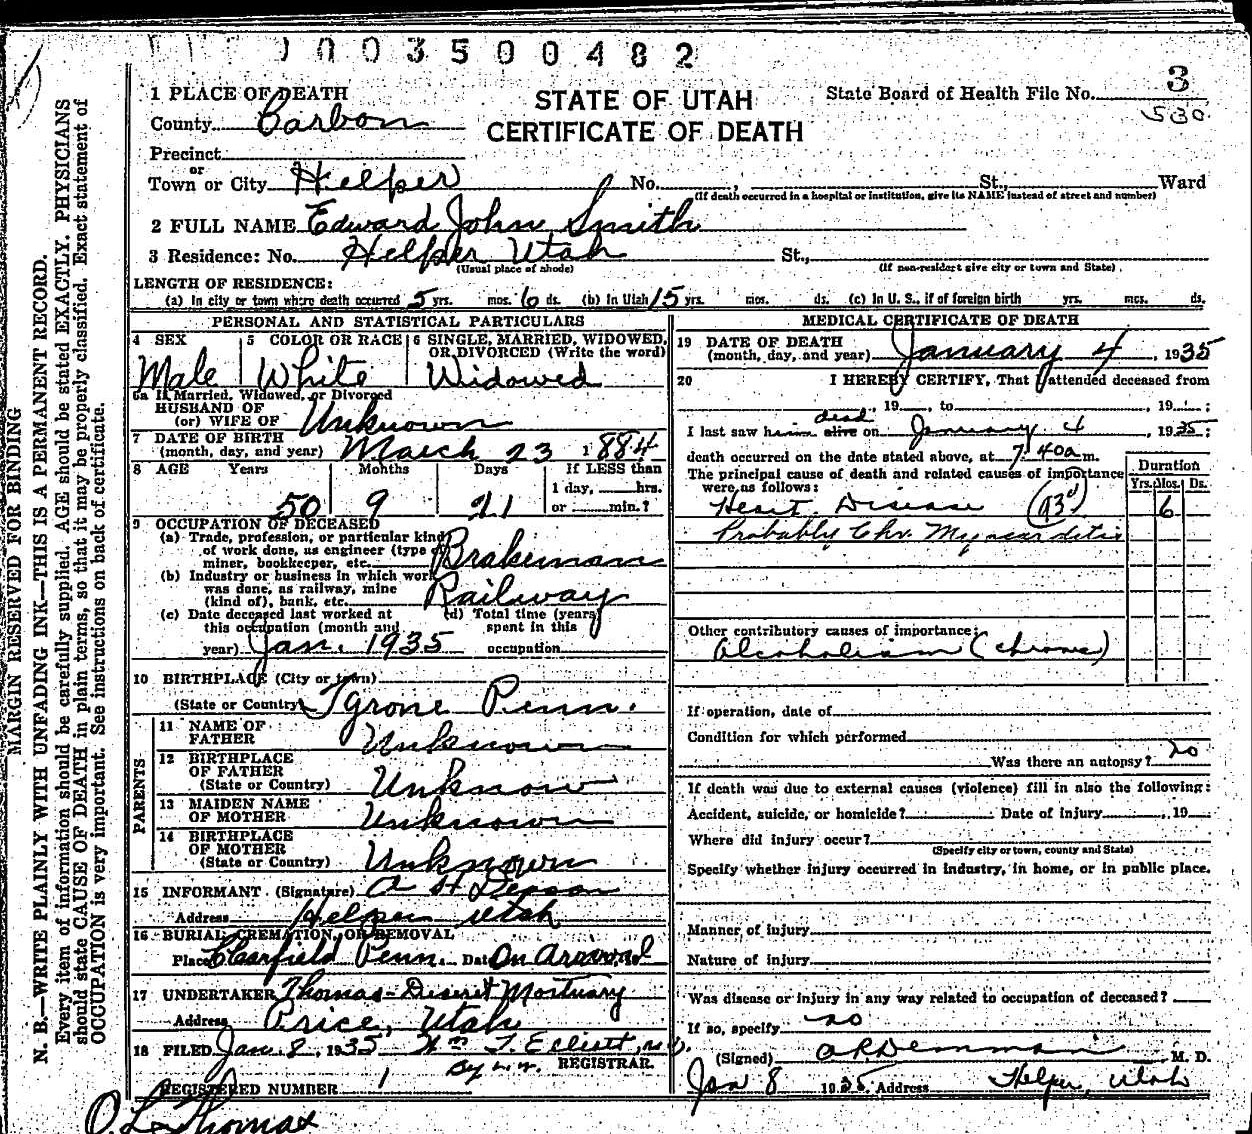 1003500482
1 PLACE OF DEATH
County Carbon
STATE OF UTAH
CERTIFICATE OF DEATH
State Board of Health File No. 3
530
Precinct
or
Town or City Helper No. , St., Ward
(If death occurred in a hospital or institution, give its NAME instead of street and number)
2 FULL NAME Edward John Smith
3 Residence: No. Helper Utah St.,
(Usual place of abode) (If non-resident give city or town and State)
LENGTH OF RESIDENCE:
(a) In city or town where death occurred 5 yrs. mos. 6 ds. (b) In Utah 15 yrs. mos. ds. (c) In U. S., if of foreign birth yrs. mos. ds.
PERSONAL AND STATISTICAL PARTICULARS
4 SEX 5 COLOR OR RACE 6 SINGLE, MARRIED, WIDOWED, OR DIVORCED (Write the word)
Male White Widowed
6a If Married, Widowed, or Divorced
HUSBAND OF
(or) WIFE OF Unknown
7 DATE OF BIRTH
(month, day, and year) March 23 1884
8 AGE Years Months Days If LESS than
1 day, hrs.
50 9 11 or min.?
9 OCCUPATION OF DECEASED
(a) Trade, profession, or particular kind
of work done, as engineer (type of
miner, bookkeeper, etc. Brakeman
(b) Industry or business in which work
was done, as railway, mine
(kind of), bank, etc. Railway
(c) Date deceased last worked at (d) Total time (years)
this occupation (month and spent in this
year) Jan. 1935 occupation
10 BIRTHPLACE (City or town)
(State or Country) Tyrone Penn.
PARENTS
11 NAME OF
FATHER Unknown
12 BIRTHPLACE
OF FATHER
(State or Country) Unknown
13 MAIDEN NAME
OF MOTHER Unknown
14 BIRTHPLACE
OF MOTHER
(State or Country) Unknown
15 INFORMANT (Signature) A H
Address Helper Utah
16 BURIAL, CREMATION, OR REMOVAL
Place Clearfield Penn. Date On Arrival
17 UNDERTAKER Thomas-Deseret Mortuary
Address Price, Utah
18 FILED Jan. 8, 1935 Wm T. Elliott, M.D.
By REGISTRAR.
REGISTERED NUMBER 1
O. L. Thomas
MEDICAL CERTIFICATE OF DEATH
19 DATE OF DEATH
(month, day, and year) January 4, 1935
20 I HEREBY CERTIFY, That I attended deceased from
, 19 , to , 19 ;
dead
I last saw him alive on January 4, 1935;
death occurred on the date stated above, at 7:40a m.
The principal cause of death and related causes of importance
were as follows: Duration
Yrs. Mos. Ds.
Heart Disease 6
Probably Chr. Myocarditis
Other contributory causes of importance:
Alcoholism (chronic)
If operation, date of
Condition for which performed
Was there an autopsy? no
If death was due to external causes (violence) fill in also the following:
Accident, suicide, or homicide? Date of injury , 19
Where did injury occur?
(Specify city or town, county and State)
Specify whether injury occurred in industry, in home, or in public place.
Manner of injury
Nature of injury
Was disease or injury in any way related to occupation of deceased?
If so, specify no
(Signed) M. D.
Jan 8 1935 Address Helper, Utah
MARGIN RESERVED FOR BINDING
N. B.—WRITE PLAINLY WITH UNFADING INK—THIS IS A PERMANENT RECORD.
Every item of information should be carefully supplied. AGE should be stated EXACTLY. PHYSICIANS
should state CAUSE OF DEATH in plain terms, so that it may be properly classified. Exact statement of
OCCUPATION is very important. See instructions on back of certificate.